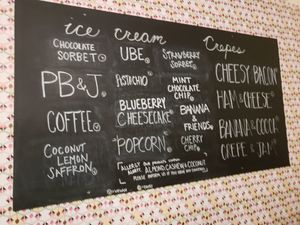 ice cream
CHOCOLATE
SORBET
PB&J
COFFEE
COCONUT
LEMON
SAFFRON
UBE
PISTACHIO
BLUEBERRY
CHEESECAKE
POPCORN
STRAWBERRY
SORBET
MINT
CHOCOLATE
CHIP
BANANA
& FRIENDS
CHERRY
CHIP
Crepes
CHEESY BACON
HAM & CHEESE
BANANA & COCOA
CREPE & JAM
ALLERGY
ALERT!
Our products contain
ALMOND, CASHEW & COCONUT
PLEASE INFORM US IF YOU HAVE ANY